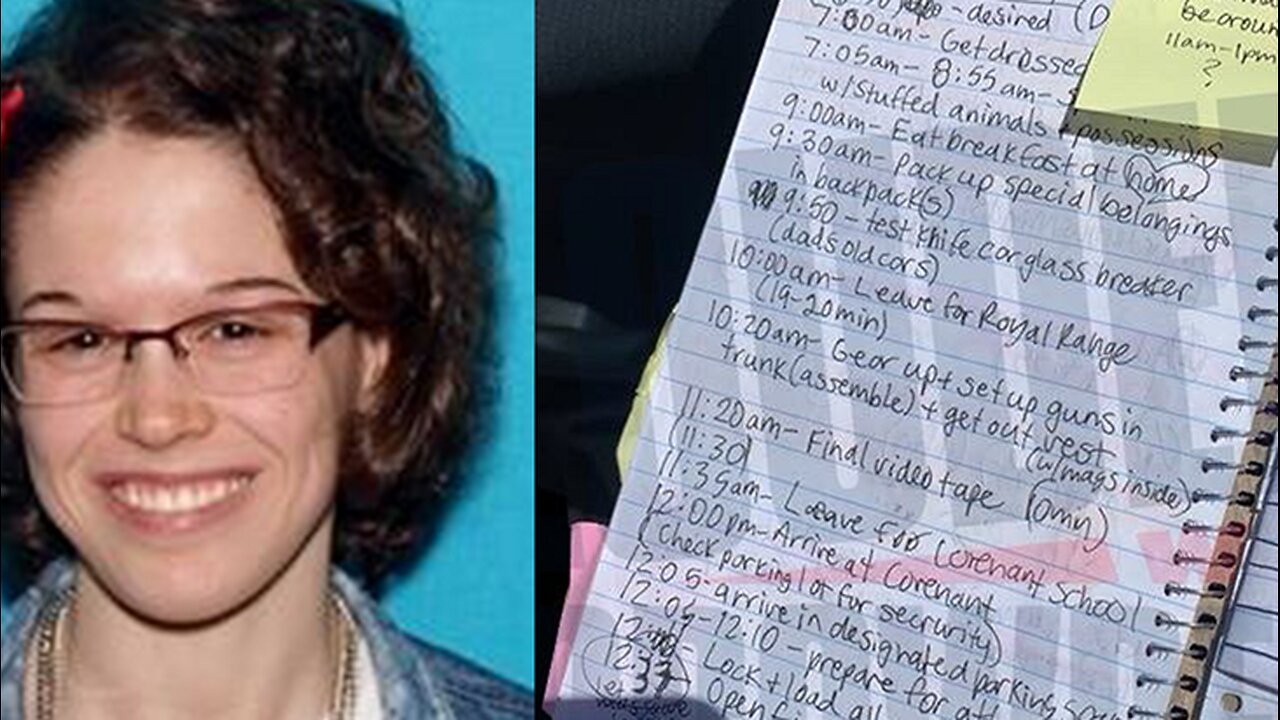 - desired (D
7:00am- Get dressed
7:05am- 8:55am- S
w/stuffed animals + possessions
9:00am- Eat breakfast at home
9:30am- Pack up special belongings
in backpack(s)
9:50- test knife car glass breaker
(dads old cars)
10:00am- Leave for Royal Range
(19-20min)
10:20am- Gear up + set up guns in
trunk (assemble) + get out vest
(w/mags inside)
11:20am- Final video tape (omy)
(11:30)
11:35am- Leave for Covenant School
12:00pm- Arrive at Covenant
(Check parking lot for security)
12:05- arrive in designated parking
12:06-12:10- prepare for att
12:33 - Lock + load all
Open
be aroun
11am-1pm
?